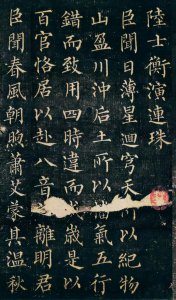 陸士衡演連珠
臣聞日薄星迴穹天所以紀物
山盈川沖后土所以播氣五行
錯而致用四時違而成歲是以
百官恪居以赴八音離明君
臣聞春風朝煦蕭艾蒙其溫秋